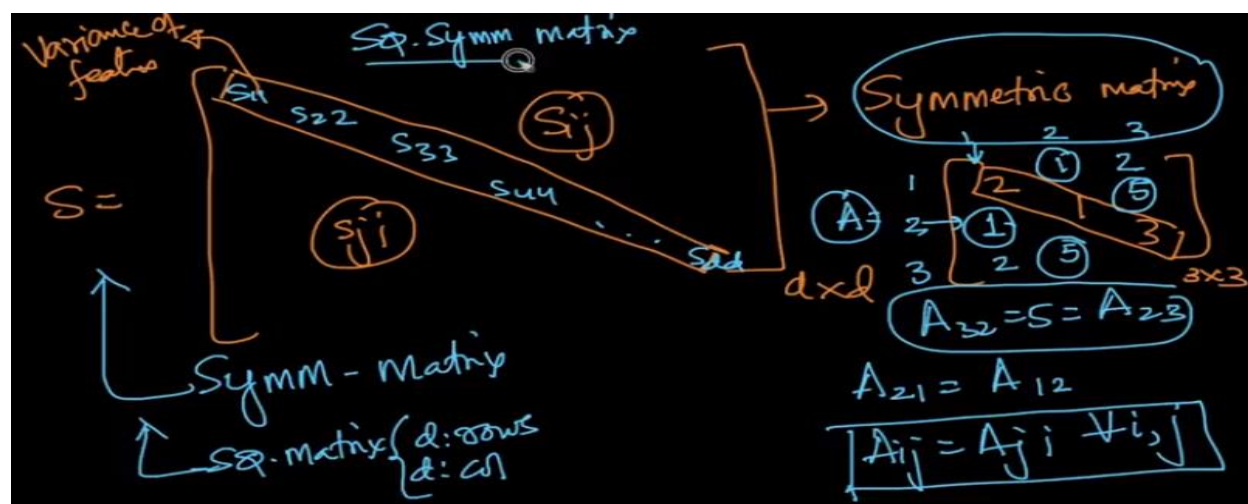 Variance of
features
Sq. Symm matrix
S =
S11
S22
S33
S44
...
Sdd
Sij
Sji
d×d
Symm - matrix
Sq. matrix { d: rows
d: col
Symmetric matrix
1 2 3
A =
1 2 1 2
2 1 1 5
3 2 5 3
3×3
A32 = 5 = A23
A21 = A12
Aij = Aji ∀i,j